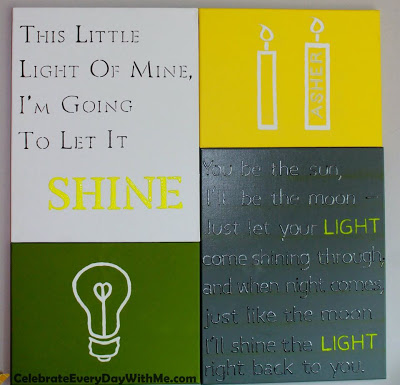 This Little
Light Of Mine,
I'm Going
To Let It
SHINE
ASHER
You be the sun,
I'll be the moon -
Just let your LIGHT
come shining through,
and when night comes,
just like the moon
I'll shine the LIGHT
right back to you.
CelebrateEveryDayWithMe.com